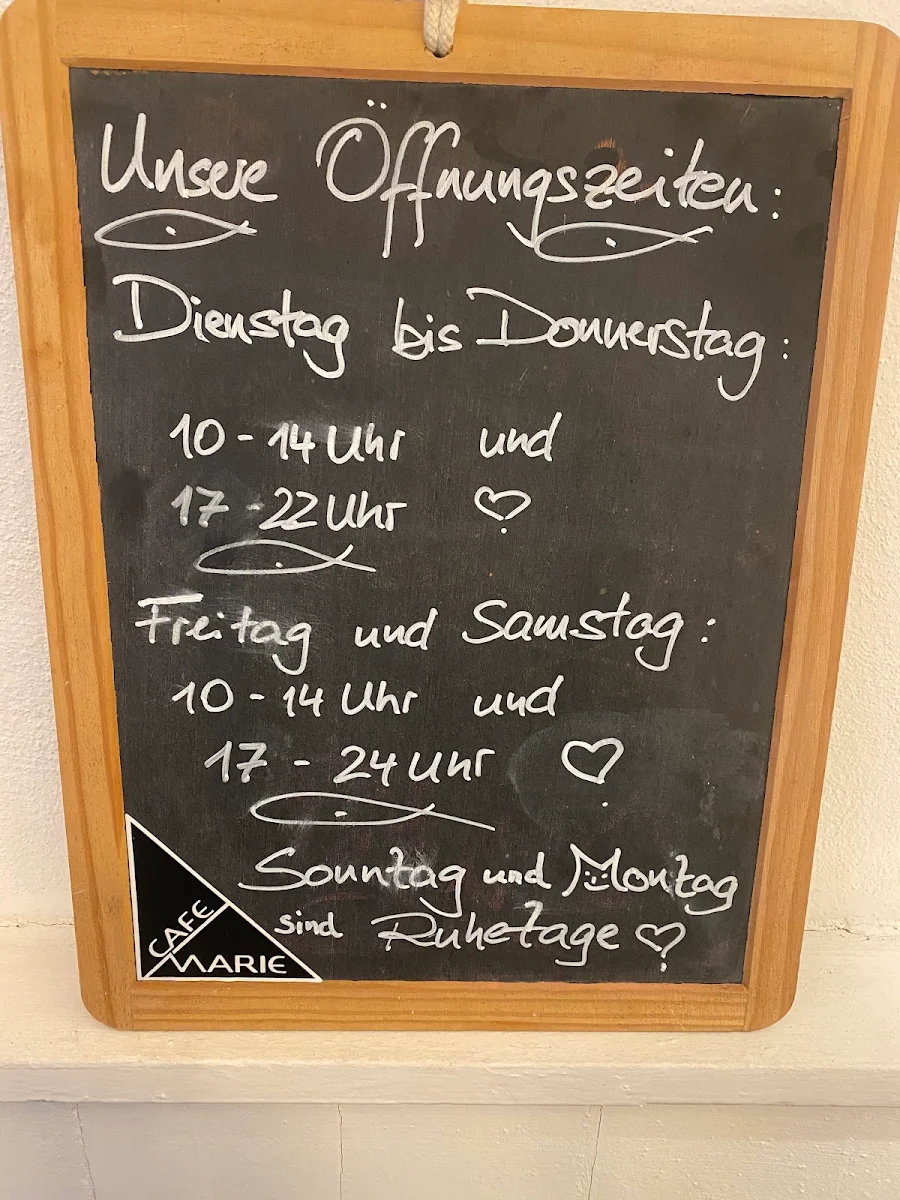 Unsere Öffnungszeiten:
Dienstag bis Donnerstag:
10 - 14 Uhr und
17 - 22 Uhr
Freitag und Samstag:
10 - 14 Uhr und
17 - 24 Uhr
Sonntag und Montag
sind Ruhetage
CAFE
MARIE